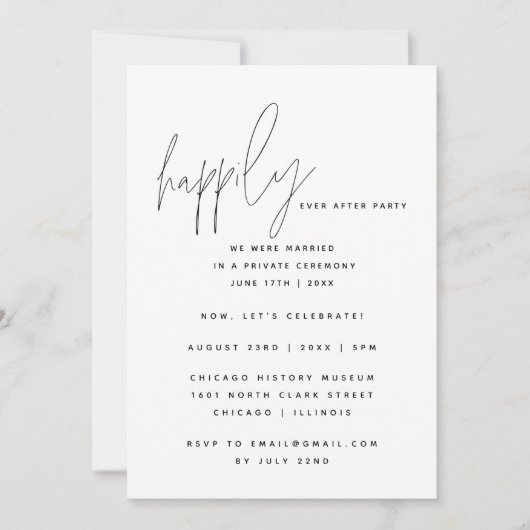 happily
EVER AFTER PARTY
WE WERE MARRIED
IN A PRIVATE CEREMONY
JUNE 17TH | 20XX
NOW, LET'S CELEBRATE!
AUGUST 23RD | 20XX | 5PM
CHICAGO HISTORY MUSEUM
1601 NORTH CLARK STREET
CHICAGO | ILLINOIS
RSVP TO EMAIL@GMAIL.COM
BY JULY 22ND